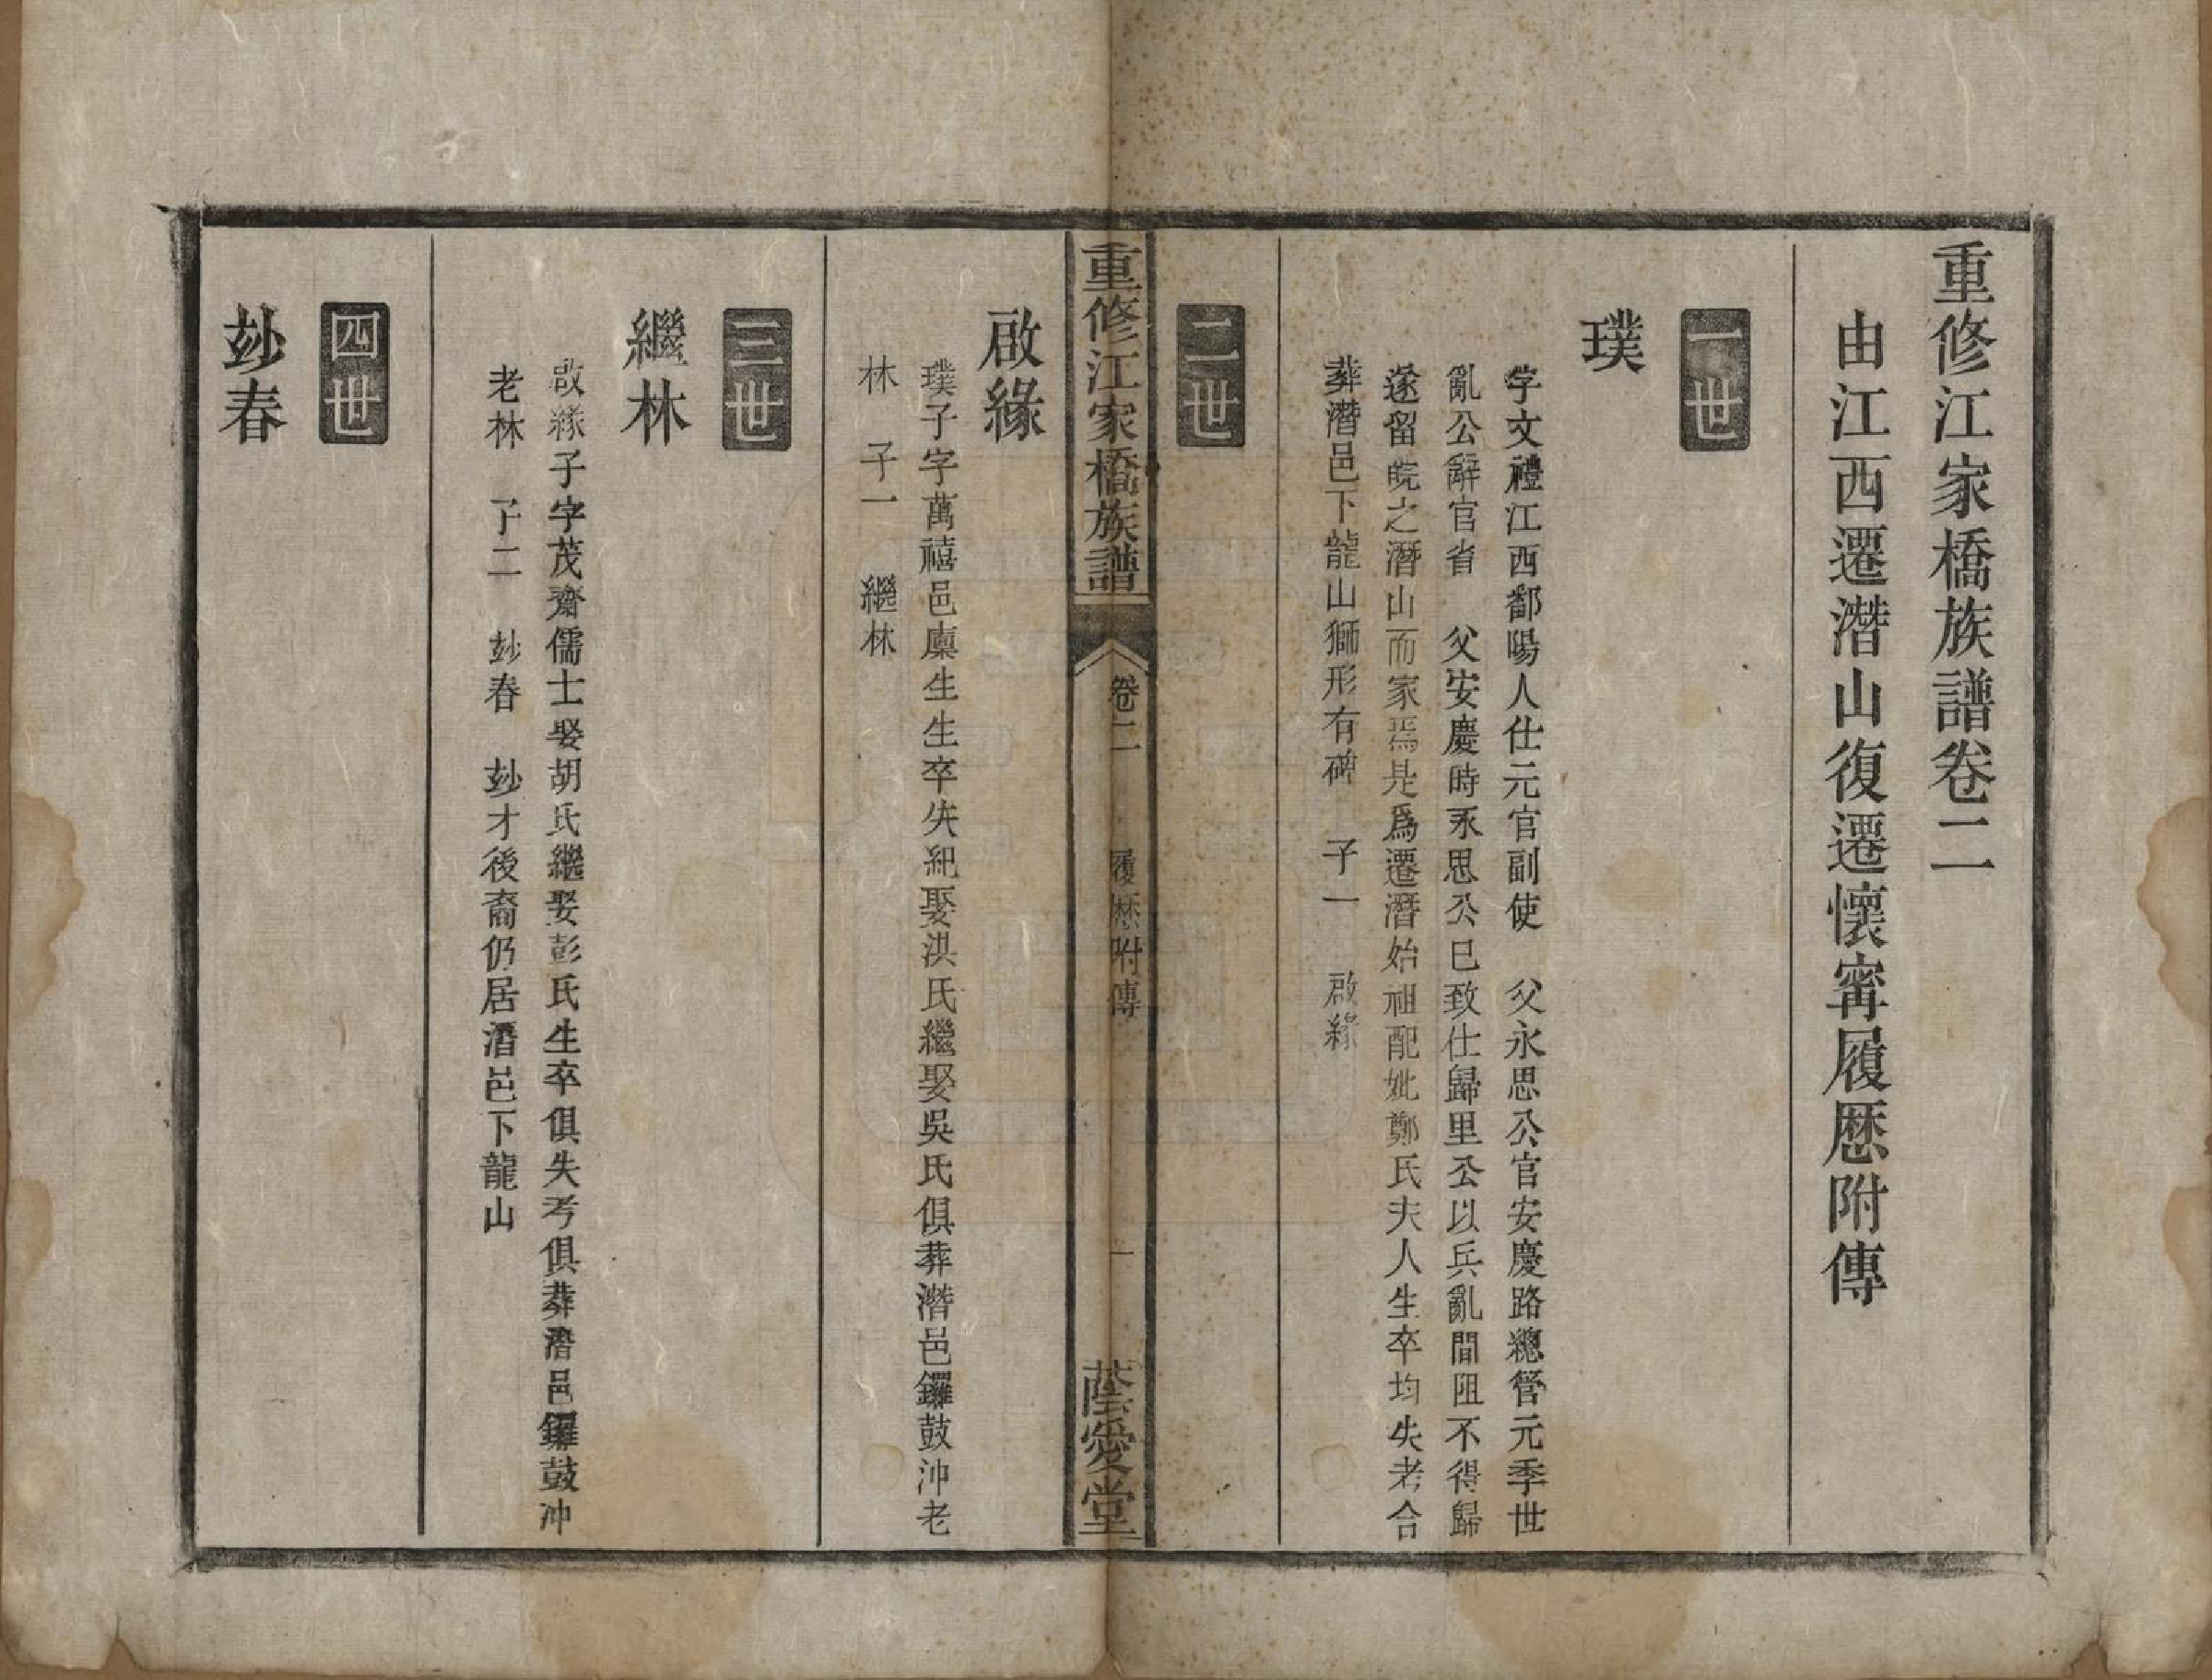 重修江家橋族譜卷二
由江西遷潛山復遷懷甯履歷附傳
一世
璞
字文禮江西鄱陽人仕元官副使　父永思公官安慶路總管元季世
亂公辭官省　父安慶時永思公已致仕歸里公以兵亂間阻不得歸
遂留皖之潛山而家焉是爲遷潛始祖配妣鄭氏夫人生卒均失考合
葬潛邑下龍山獅形有碑　子一　啟緣
二世
重修江家橋族譜
卷二
履歷附傳
一
蔭愛堂
啟緣
璞子字萬禧邑廩生生卒失紀娶洪氏繼娶吳氏俱葬潛邑鑼鼓沖老
林　子一　繼林
三世
繼林
啟緣子字茂齊儒士娶胡氏繼娶彭氏生卒俱失考俱葬潛邑鑼鼓冲
老林　子二　玅春　玅才後裔仍居潛邑下龍山
四世
玅春